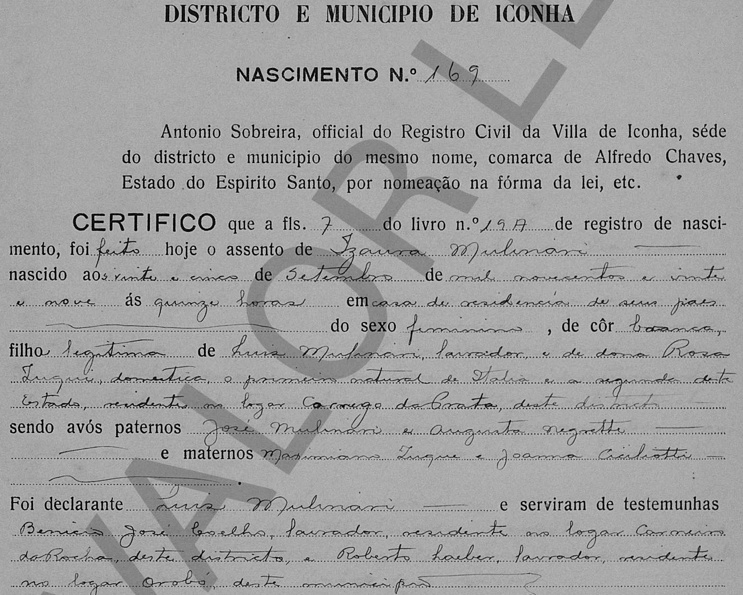 DISTRICTO E MUNICIPIO DE ICONHA
NASCIMENTO N.º 169
Antonio Sobreira, official do Registro Civil da Villa de Iconha, séde
do districto e municipio do mesmo nome, comarca de Alfredo Chaves,
Estado do Espirito Santo, por nomeação na fórma da lei, etc.
CERTIFICO que a fls. 7 do livro n.º 19A de registro de nasci-
mento, foi feito hoje o assento de Izaura Mulinari
nascido aos vinte e cinco de Setembro de mil novecentos e vinte
e nove ás quinze horas em casa de residencia de seus paes
do sexo feminino, de côr branca,
filho legitima de Luis Mulinari, lavrador, e de dona Rosa
Tuque, domestica, o primeiro natural de Italia e a segunda deste
Estado, residente no logar Corrego da Prata, deste districto
sendo avós paternos José Mulinari e Augusta Negrette
e maternos Maximiano Tuque e Joanna Ciciliotti
Foi declarante Luis Mulinari e serviram de testemunhas
José Coelho, lavrador, residente no logar
da Rocha, deste districto, e Roberto lavrador, residente
no logar Orobó, deste municipio
VALOR LE